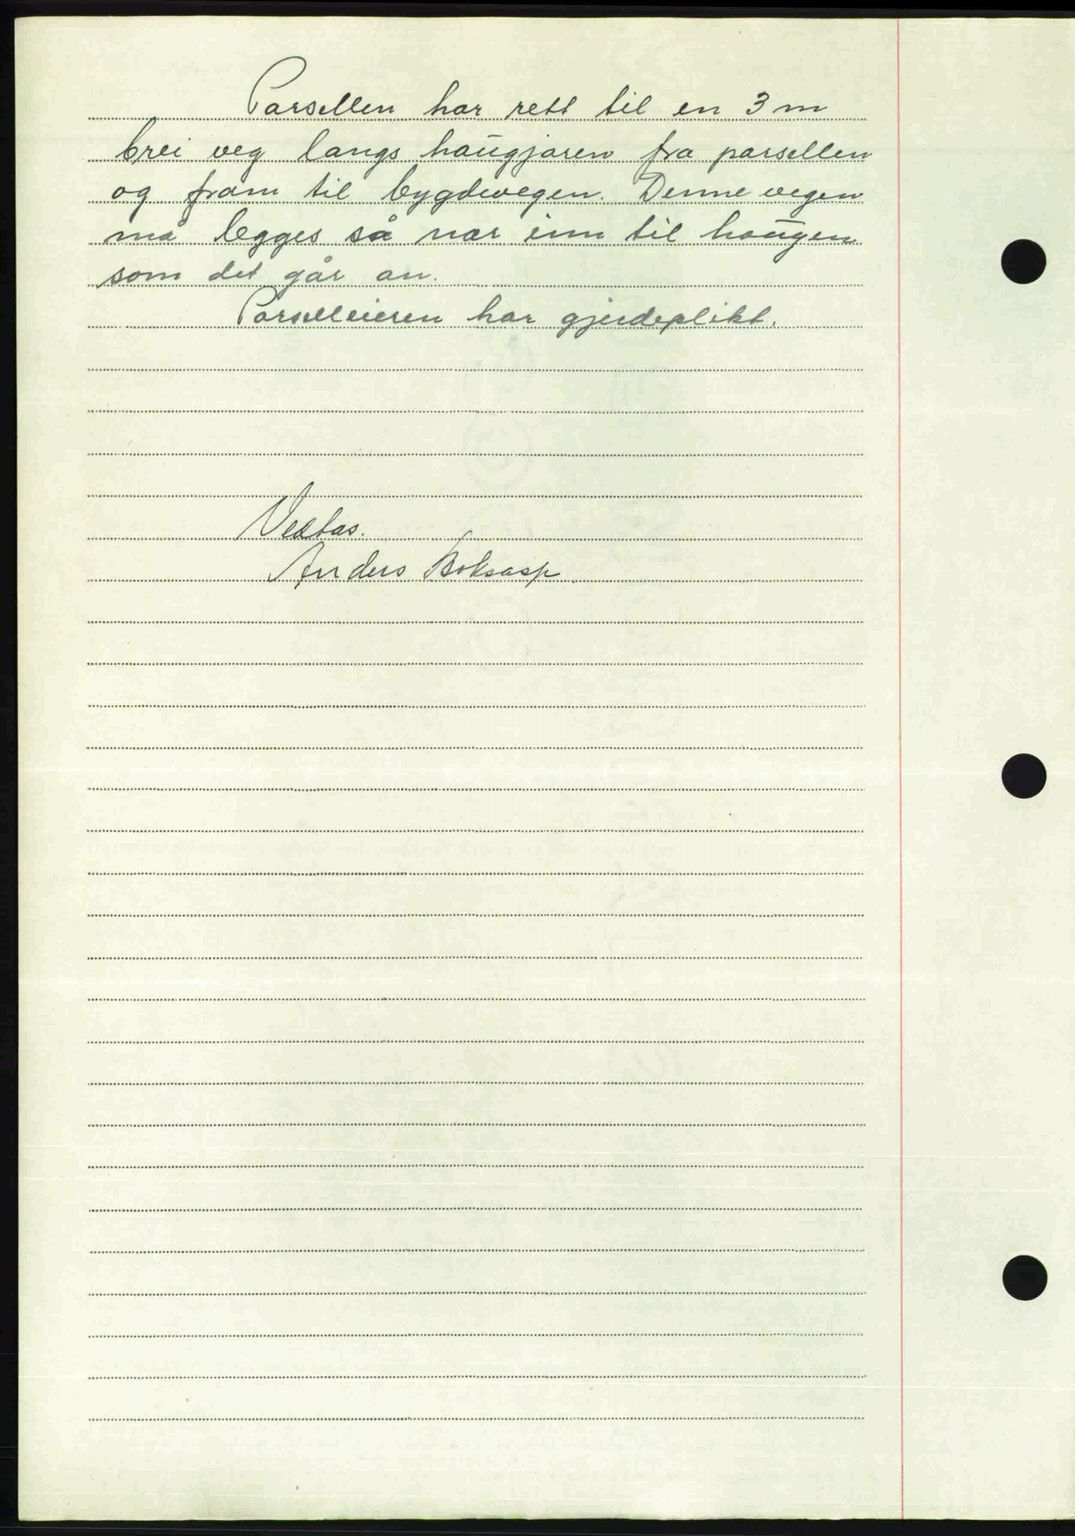 Parsellen har rett til en 3 m
brei veg langs haugjaren fra parsellen
og fram til bygdevegen. Denne vegen
må legges så nær inn til haugen
som det går an.
Parselleieren har gjerdeplikt.
Vedtas.
Anders Boksasp